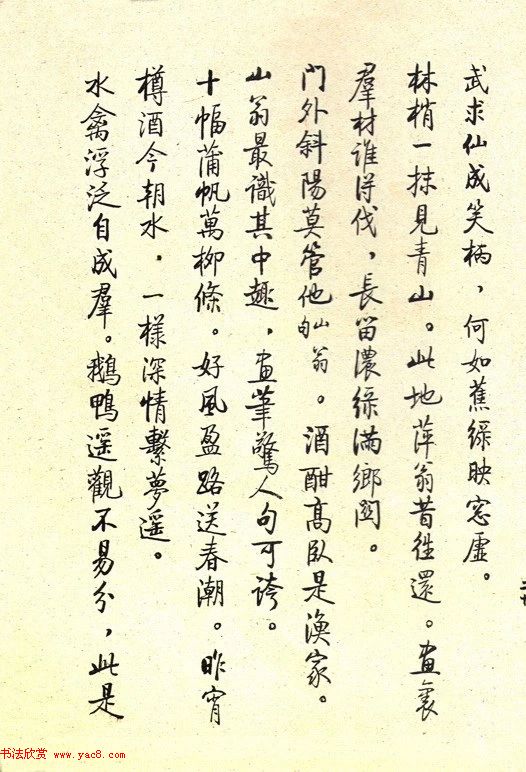 武求仙成笑柄，何如蕉緑映窓虛。
林梢一抹見青山。此地萍翁昔往還。畫裏
羣材誰得伐，長留濃緑滿鄉關。
門外斜陽莫管他山翁句。酒酣高臥是漁家。
山翁最識其中趣，畫筆驚人句可誇。
十幅蒲帆萬柳條。好風盈路送春潮。昨宵
樽酒今朝水，一樣深情繫夢遥。
水禽浮泛自成羣。鵝鴨遥觀不易分，此是
书法欣赏 www.yac8.com